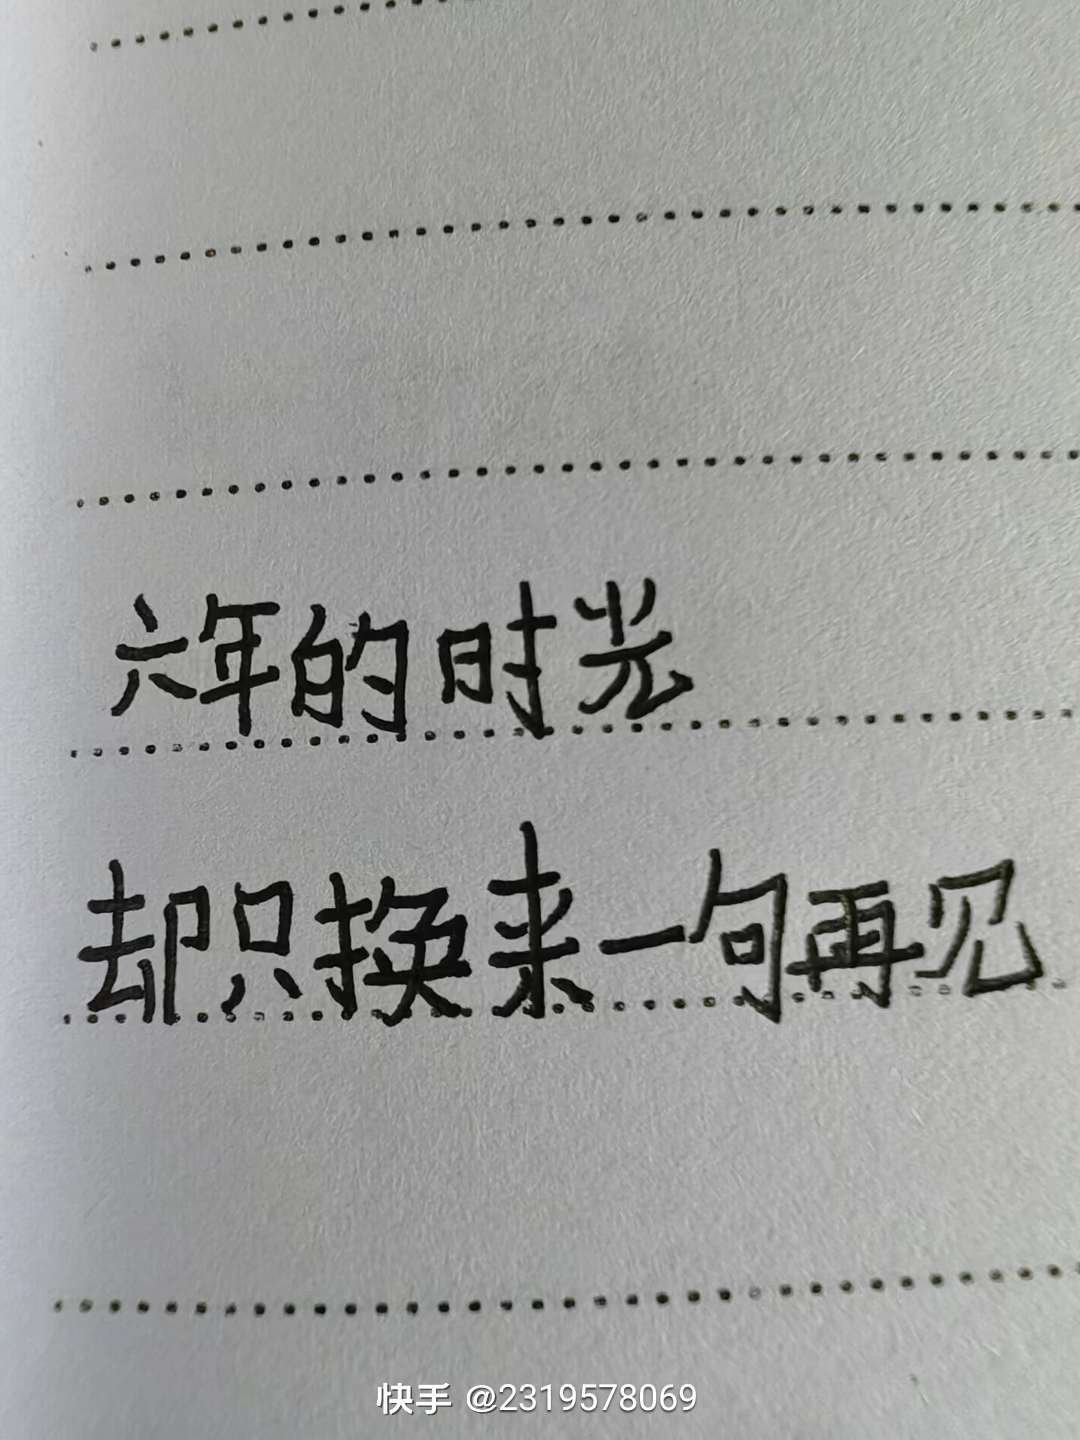 六年的时光
却只换来一句再见
快手 @2319578069